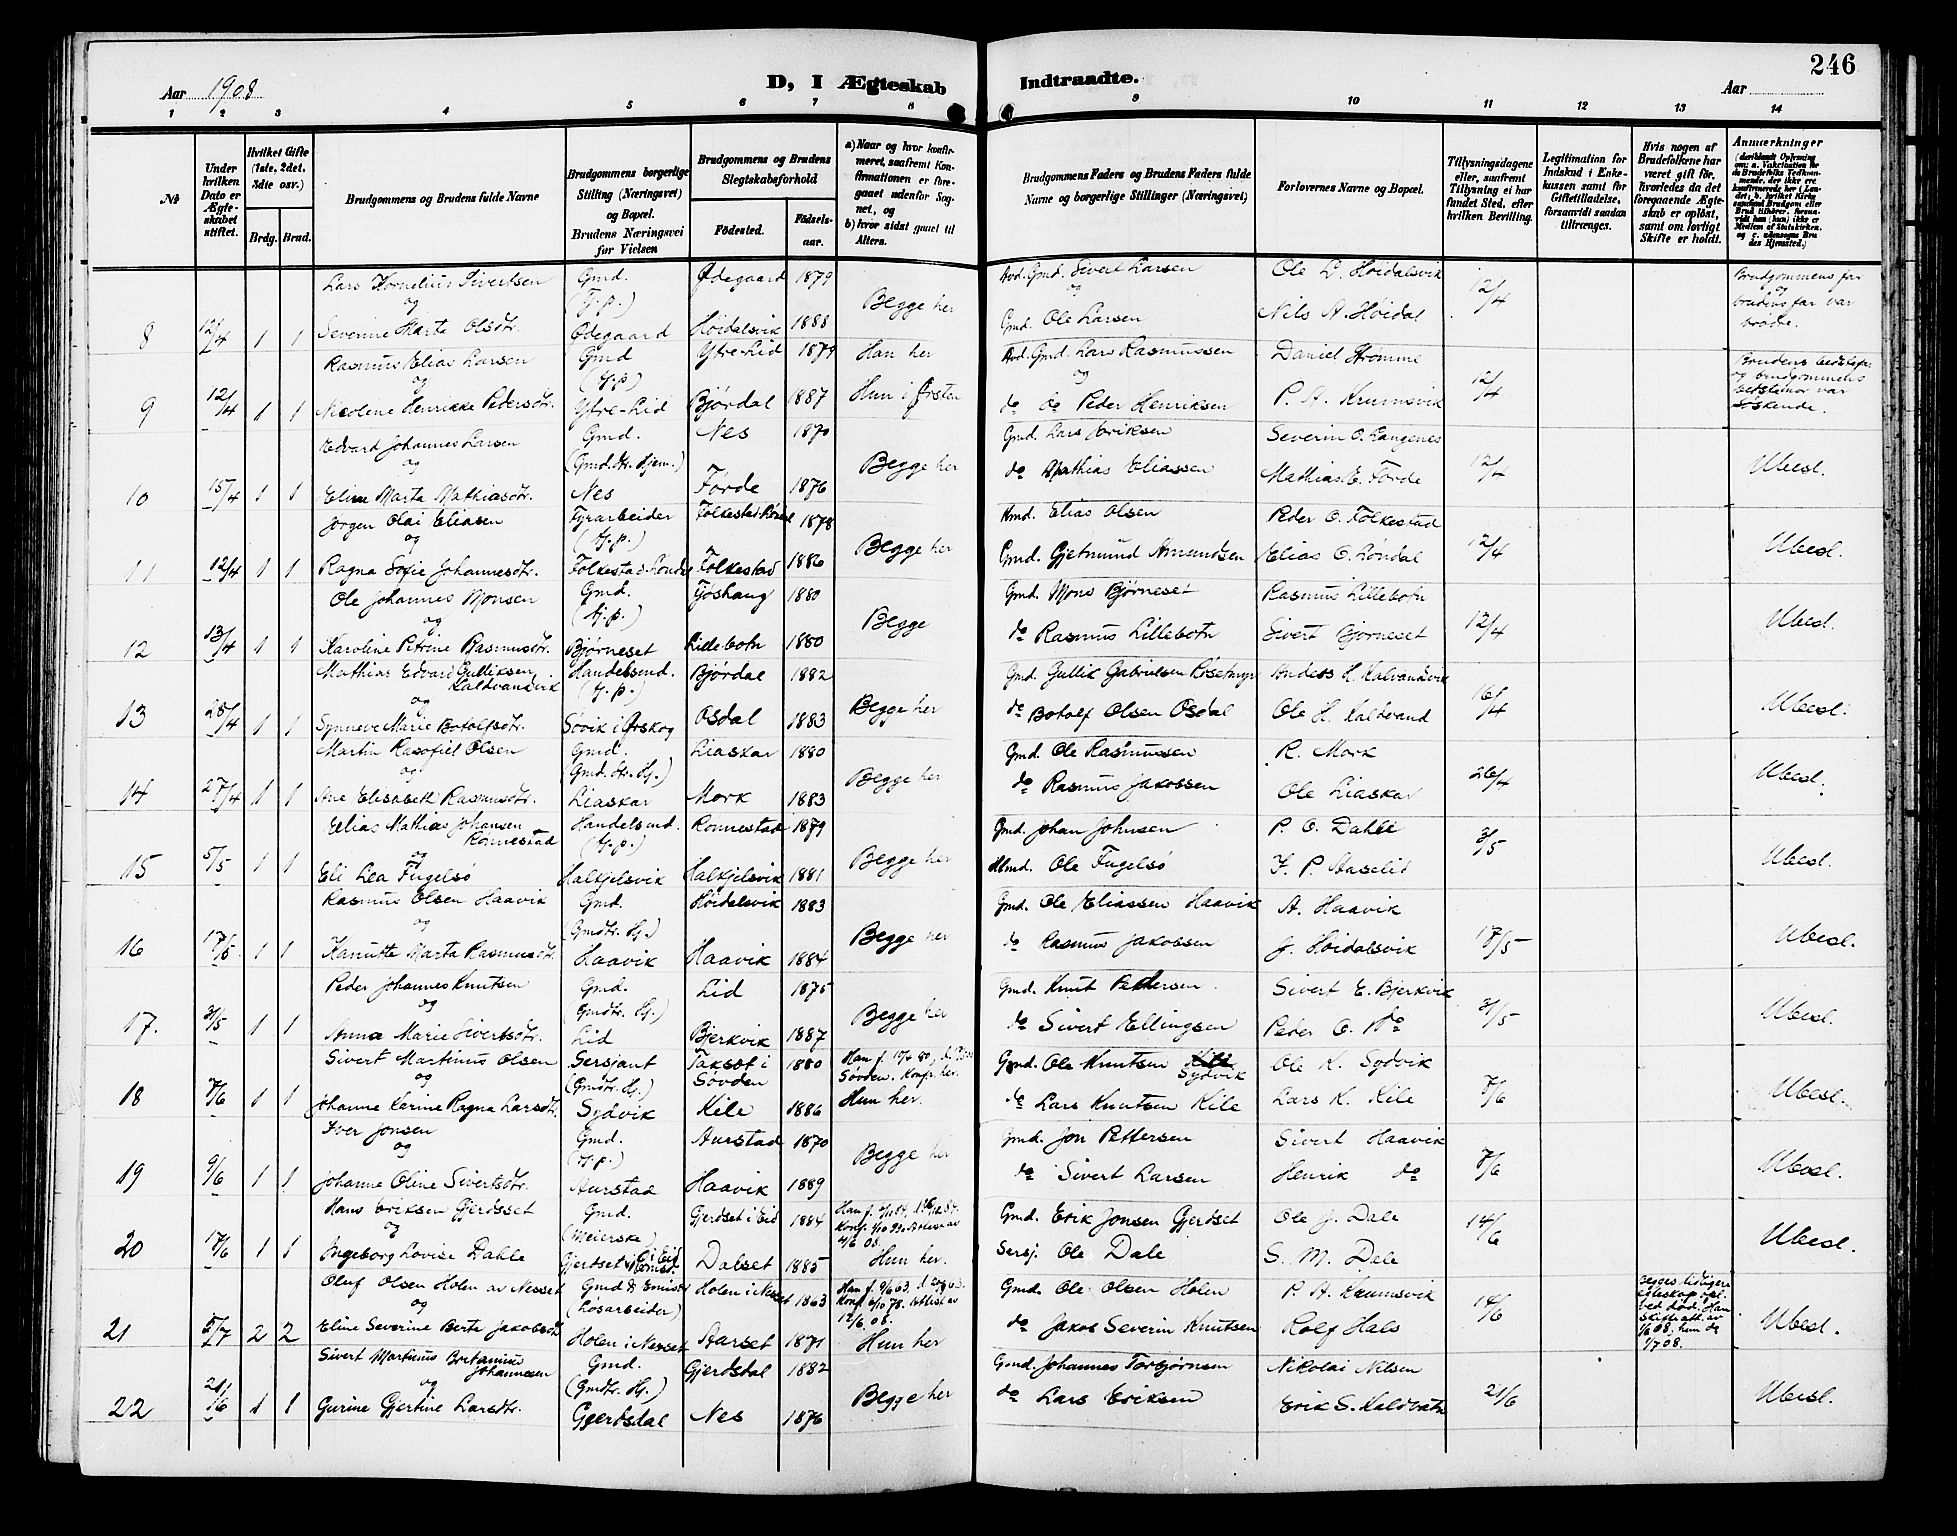 246
Aar 1908
D, I Ægteskab
Indtraadte.
Aar
1 2 3 4 5 6 7 8 9 10 11 12 13 14
№
Under hvilken Dato er Ægteskabet stiftet.
Hvilket Gifte (1ste, 2det, 3die osv.)
Brdg. Brud.
Brudgommens og Brudens fulde Navne
Brudgommens borgerlige Stilling (Næringsvei) og Bopæl. Brudens Næringsvei før Vielsen
Brudgommens og Brudens Slegtskabsforhold
Fødested. Fødselsaar.
a) Naar og hvor konfirmeret, saafremt Konfirmationen er foregaaet udenfor Sognet, og b) hvor sidst gaaet til Alters.
Brudgommens Faders og Brudens Faders fulde Navne og borgerlige Stillinger (Næringsvei)
Forlovernes Navne og Bopæl.
Tillysningsdagene eller, saafremt Tillysning ei har fundet Sted, efter hvilken Bevilling.
Legitimation for Indskud i Enkekassen samt for Giftetilladelse, forsaavidt saadan tiltrænges.
Hvis nogen af Brudefolkene har været gift før, hvorledes da det foregaaende Ægteskab er opløst, samt om lovligt Skifte er holdt.
Anmerkninger
Lars Kornelius Sivertsen Gmd. Ødegaard 1879 Avd. Gmd. Sivert Larsen Ole L. Høidalsvik Brudgommens far
og (Hj.p.) Begge her og 12/4 og brudens far var
8 12/4 1 1 Severine Marta Olsdtr. Ødegaard Høidalsvik 1888 Gmd. Ole Larsen Nils A. Høidal brødre.
Rasmus Elias Larsen Gmd Ytre-Lid 1879 Han her Avd. Gmd. Lars Rasmussen Daniel Strømme
og (Hj.p.) og 12/4 og brudgommens
9 12/4 1 1 Nicoline Henrikke Pedersdtr. Ytre-Lid Bjørdal 1887 Hun i Ørsten do do Peder Henriksen P. A. Krumsvik Søskende.
Edvard Johannes Larsen Gmd. Nes 1870 Gmd. Lars Eriksen Severin O. Langenes
og (Gmd.dtr. Hjem.) Begge her 12/4 Ubesl.
10 15/4 1 1 Eline Marta Mathiasdtr. Nes Førde 1876 do Mathias Eliassen Mathias E. Førde
Jørgen Olai Eliasen Fyrarbeider 1878 Hmd. Elias Olsen Peder O. Folkestad
og (Hj.p.) Begge her 12/4 Ubesl.
11 12/4 1 1 Ragna Sofie Johannesdtr. Folkestad 1886 Gmd. Gjetmund Amundsen Elias O. Løndal
Ole Johannes Monsen Gmd. Tjøshaug 1880 Gmd. Mons Bjørneset Rasmus Lillebotn
og (Hj.p.) Begge 12/4 Ubesl.
12 13/4 1 1 Karoline Petrine Rasmusdtr. Bjørneset Lillebotn 1880 do Rasmus Lillebotn Sivert Bjørneset
Mathias Edvard Gulliksen Kaldvandvik Handelsmd. Bjørdal 1882 Gmd. Gullik Gabrielsen Anders H. Kalvandvik
og (Hj.p.) Begge her 16/4 Ubesl.
13 28/4 1 1 Synneve Marie Botolfsdtr. Søvik i Ørskog Osdal 1883 do Botolf Olsen Osdal Ole H. Kaldvand
Martin Rasofiel Olsen Gmd. Liaskar 1880 Gmd. Ole Rasmussen R. Mork
og (Gmd.dtr. Hj.) Begge her 26/4 Ubesl.
14 27/4 1 1 Ane Elisabeth Rasmusdtr. Liaskar Mork 1883 do Rasmus Jakobsen Ole Liaskar
Elias Mathias Johansen Rønnestad Handelsmd. Ronnestad 1879 Gmd. Johan Johnsen P. O. Dahle
og (Hj.p.) Begge her 3/5 Ubesl.
15 5/5 1 1 Eli Lea Fugelsø Halkjelsvik Halkjelsvik 1881 Hmd. Ole Fugelsø K. P. Aaselid
Rasmus Olsen Haavik Gmd. Høidalsvik 1883 Gmd. Ole Eliassen Haavik A. Haavik
og (Gmdtr. Hj.) Begge her 17/5 Ubesl.
16 17/5 1 1 Kanutte Marta Rasmusdtr. Haavik Haavik 1884 do Rasmus Jakobsen J. Høidalsvik
Peder Johannes Knutsen Gmd. Lid 1875 Gmd. Knut Pedersen Sivert E. Bjerkvik
og (Gmdtr. Hj.) Begge her 31/5 Ubesl.
17. 31/5 1 1 Anna Marie Sivertsdtr. Lid Bjerkvik 1887 do Sivert Ellingsen Peder O. do
Sivert Martinus Olsen Sersjant Taksæt i Søvden 1880 Søvden. Konf. her. Gmd. Ole Knutsen Sydvik Ole K. Sydvik
og (Gmdtr. Hj.) Hun her. 7/6 Ubesl.
18 7/6 1 1 Johanne Karine Ragna Larsdtr. Sydvik Kile 1886 do Lars Knutsen Kile Lars K. Kile
Iver Jonsen Gmd. Aurstad 1870 Gmd. Jon Pettersen Sivert Haavik
og (Hj.p.) Begge her 8/6 Ubesl.
19 9/6 1 1 Johanne Oline Sivertsdtr. Aurstad Haavik 1889 do Sivert Larsen Henrik do
Hans Eriksen Gjerdsset Gmd. Gjerdset i Eid 1884 4/6 08. Gmd. Erik Jonsen Gjerdset Ole J. Dale
og (Meierske) Hun her. 14/6 Ubesl.
20 17/6 1 1 Ingeborg Lovise Dahle Dalset 1885 Sersj. Ole Dale S. M. Dale
Oluf Olsen Holen av Nesset Gmd & Holen i Nesset 1863 Gmd. Ole Olsen Holen P. A. Krumsvik
og (Løsarbeider) 12/6 08. 14/6 Ubesl.
21 5/7 2 2 Eline Severine Berte Jakobsdtr Holen i Nesset Aarset 1871 Hun her do Jakob Severin Knutsen Rolf Hals
Begges tidligere egteskap opl. ved død. Han skifteatt. av 1/6 08, hun do 1/7 08.
Sivert Martinus Bretanius Johannesen Gmd. Gjerdsdal 1882 Gmd. Johannes Torbjørnsen Nikolai Nilsen
og (Gmdtr. Hj.) Begge her 21/6 Ubesl.
22 21/6 1 1 Gurine Gjertine Larsdtr. Gjerdsdal Nes 1876 do Lars Eriksen Erik S. Kaldvatn